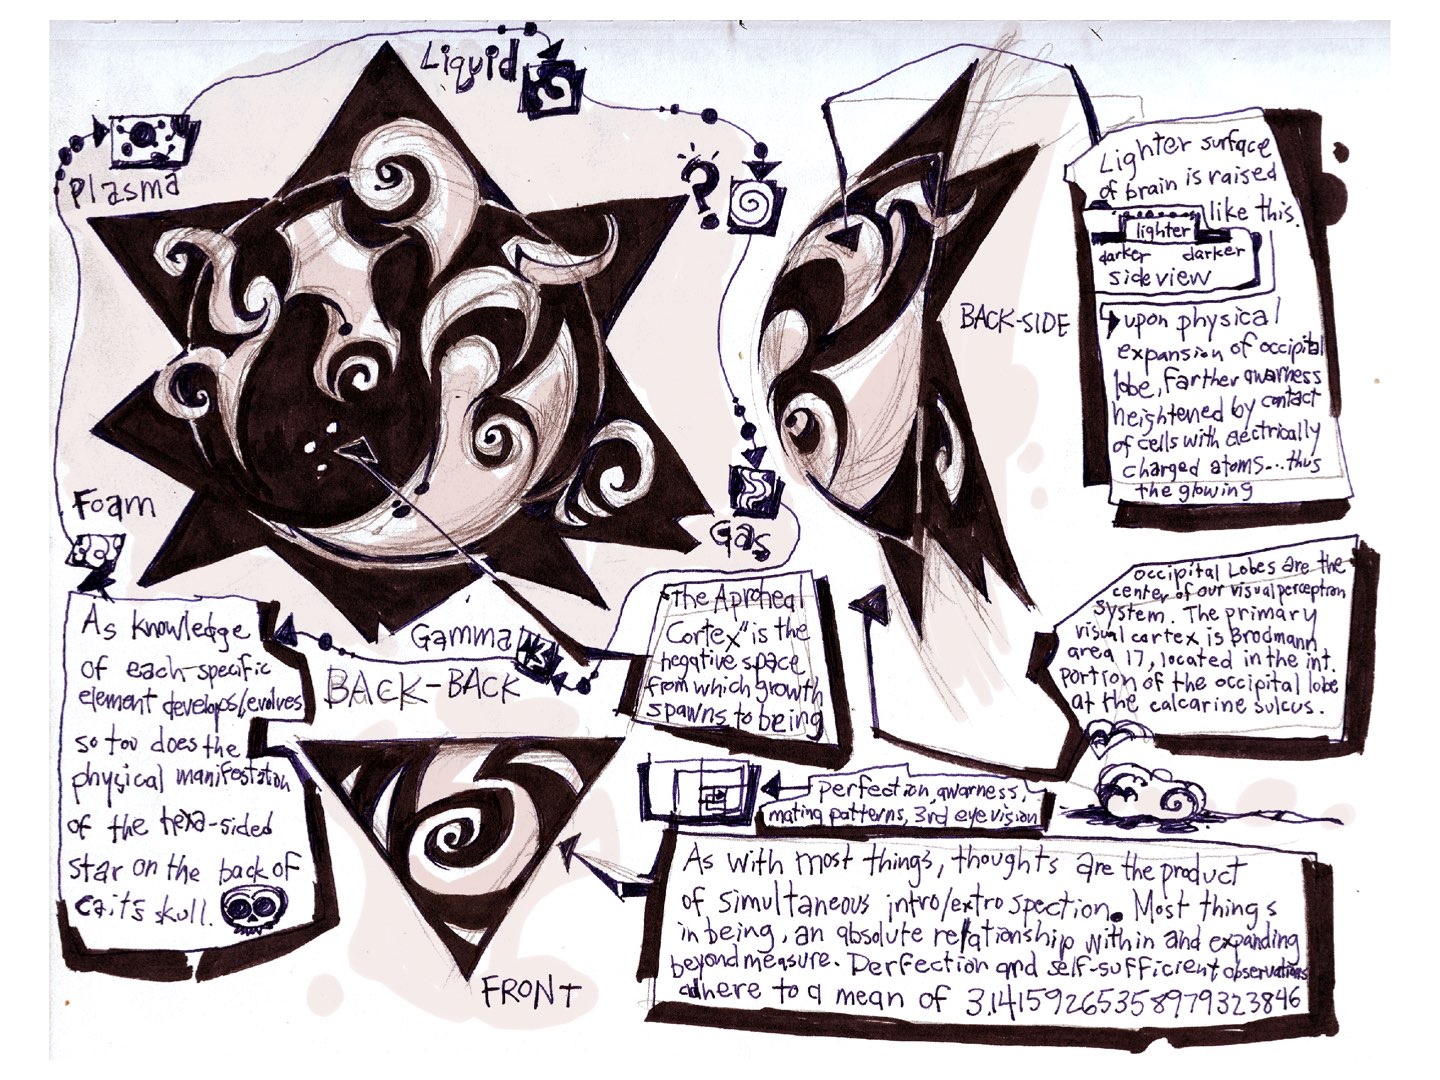 Liquid
Plasma
?
Foam
Gas
Gamma
BACK-BACK
BACK-SIDE
FRONT
Lighter surface
of brain is raised
like this.
lighter
darker darker
side view
upon physical
expansion of occipital
lobe, farther awarness
heightened by contact
of cells with electrically
charged atoms...thus
the glowing
occipital Lobes are the
center of our visual perception
system. The primary
visual cortex is Brodmann
area 17, located in the int.
portion of the occipital lobe
at the calcarine sulcus.
"the Aproheal
Cortex" is the
negative space
from which growth
spawns to being
As knowledge
of each-specific
element develops/evolves
so too does the
physical manifestation
of the hexa-sided
star on the back of
cait's skull.
perfection, awarness,
mating patterns, 3rd eye vision
As with most things, thoughts are the product
of simultaneous intro/extro spection. Most things
in being, an absolute relationship within and expanding
beyond measure. Perfection and self-sufficient observations
adhere to a mean of 3.14159265358979323846